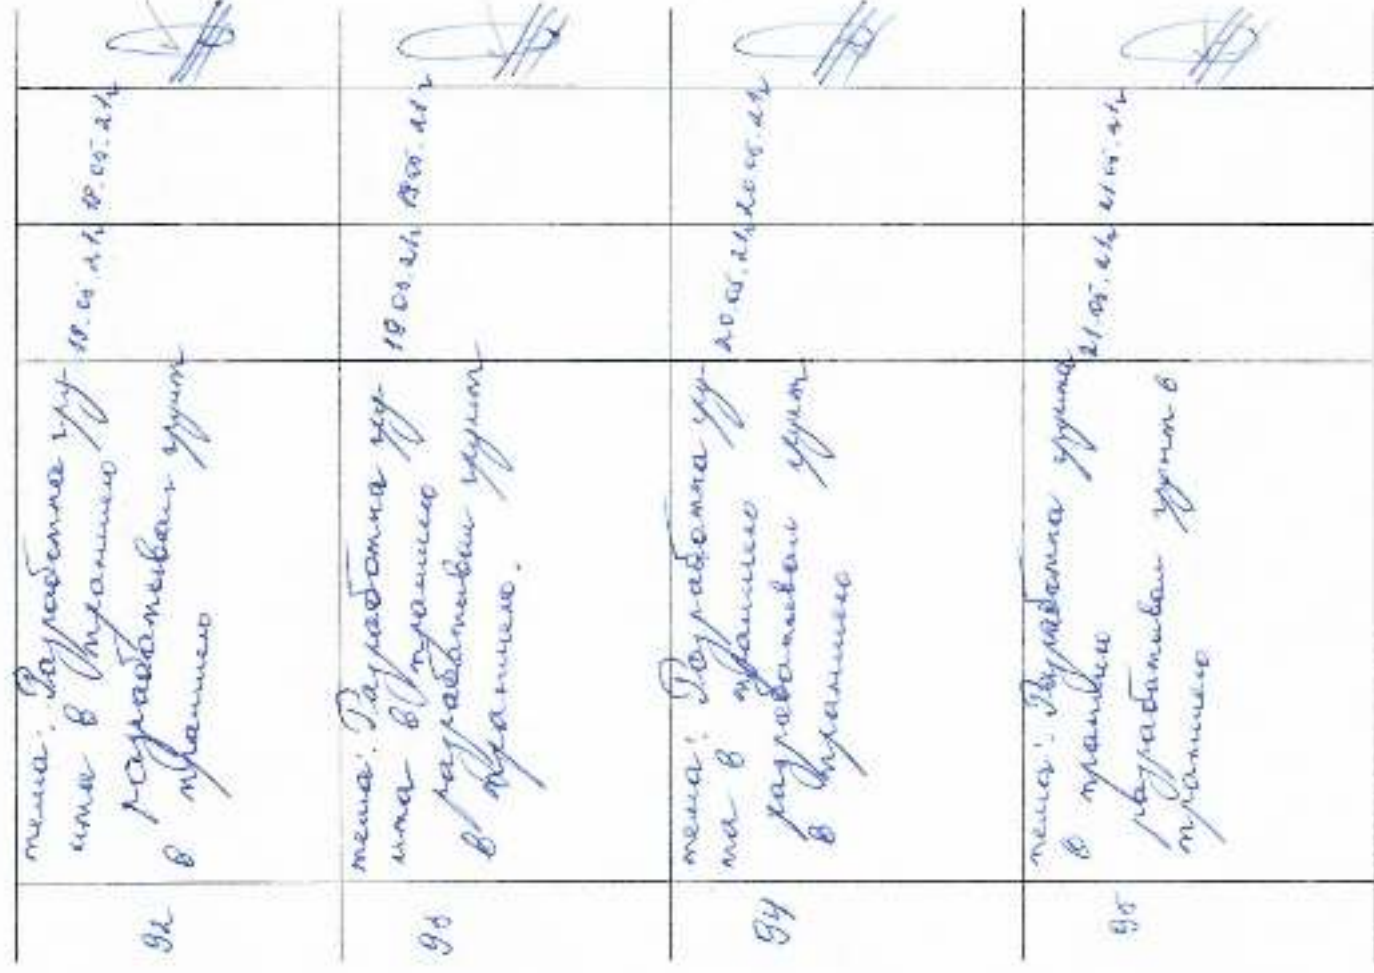 92
тема: Разработка гру-
нта в траншею
разрабатывал грунт
в траншею
18.05.21г
18.05.21г
93
тема: Разработка гру-
нта в траншею
разрабатывал грунт
в траншею.
19.05.21г
19.05.21г
94
тема: Разработка гру-
нта в траншею
разрабатывал грунт
в траншею
20.05.21г
20.05.21г
95
тема: Разработка грунта
в траншею
разрабатывал грунт в
траншею
21.05.21г
21.05.21г